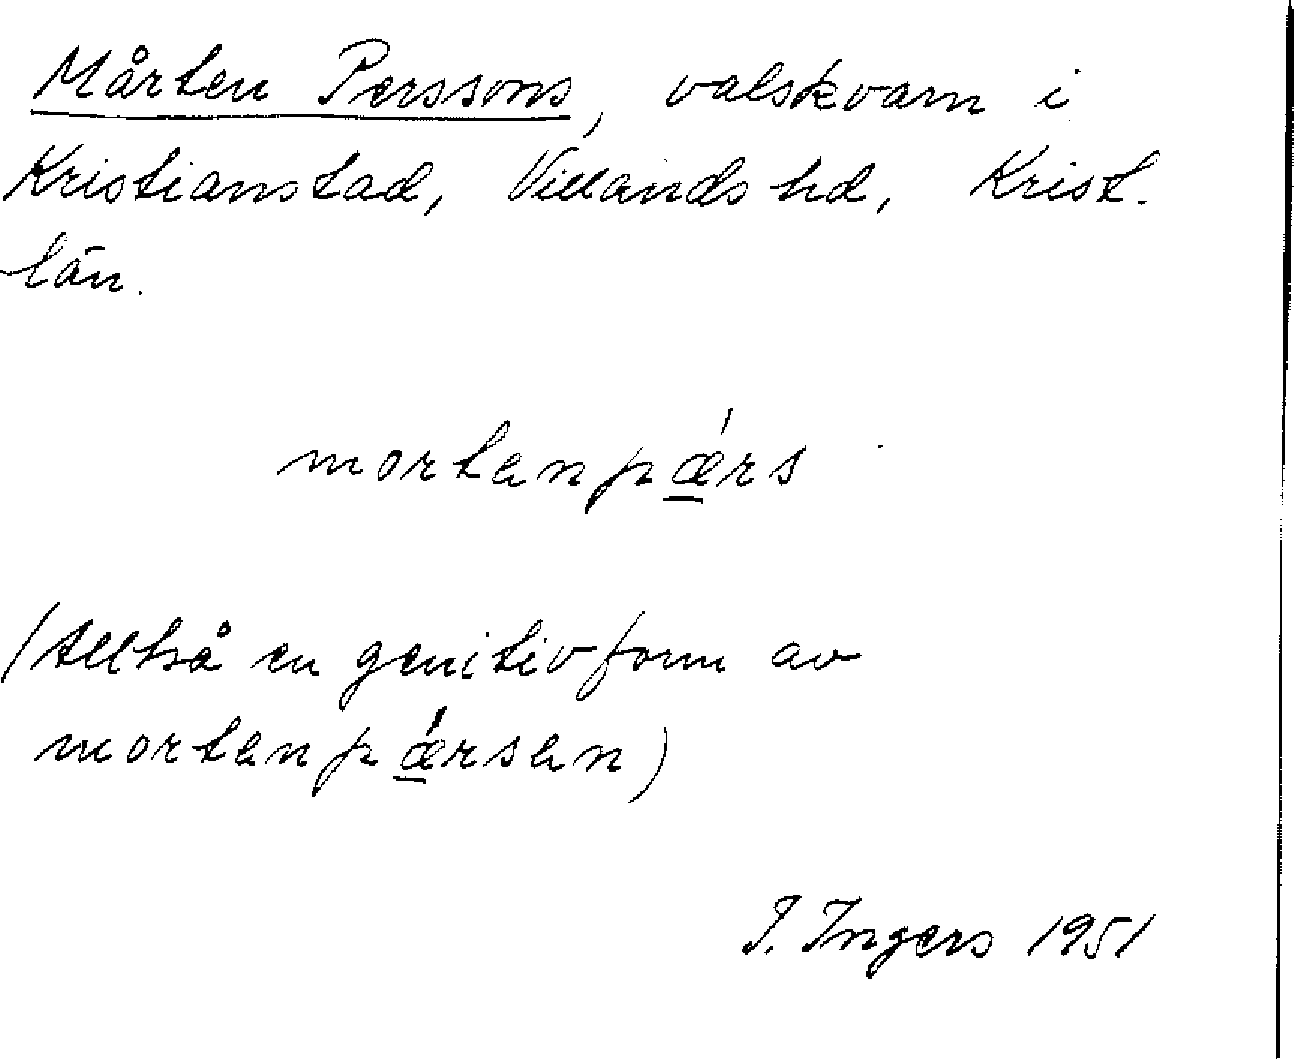 Mårten Perssons, valskvarn i
Kristianstad, Villands hd, Krist.
län.
mortenpǽ̲rs
(Alltså en genitivform av
mortenpǽ̲rsen)
I. Ingers 1951